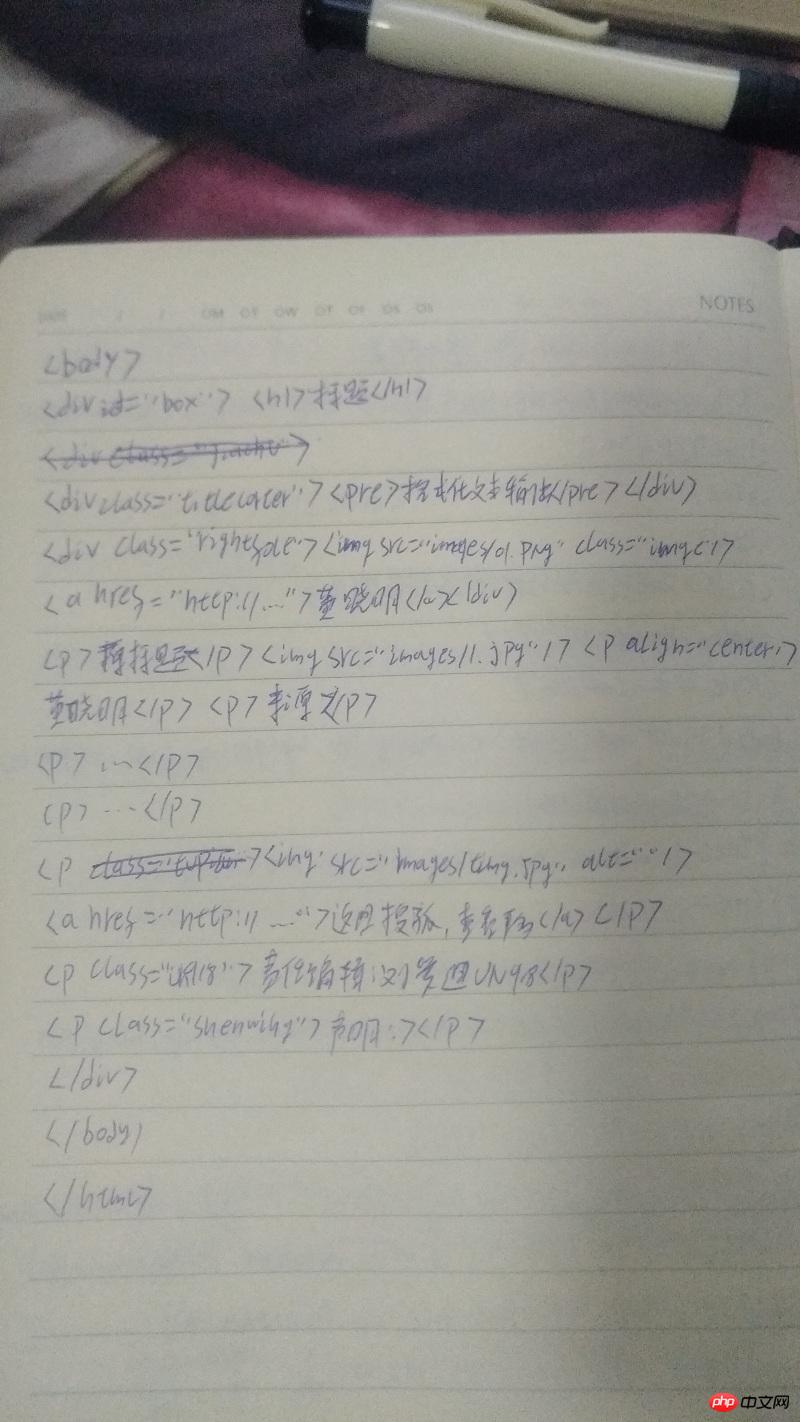 NOTES
<body>
<div id="box"> <h1>标题</h1>
<div class=" >
<div class="title > <pre>格式化文本输出</pre></div>
<div class="right "><img src="images/01.png" class="img />
<a href="http://...">董晓明</a></div>
<p> 标题</p><img src="images/1.jpg"/> <p align="center">
董晓明</p> <p>来源 </p>
<p>...</p>
<p>...</p>
<p ><img src="images/timg.jpg" alt=""/>
<a href="http:// ...">返回搜狐,查看 </a></p>
<p class=" ">责任编辑:刘 UN98</p>
<p class="shenming">声明:></p>
</div>
</body>
</html>
php 中文网